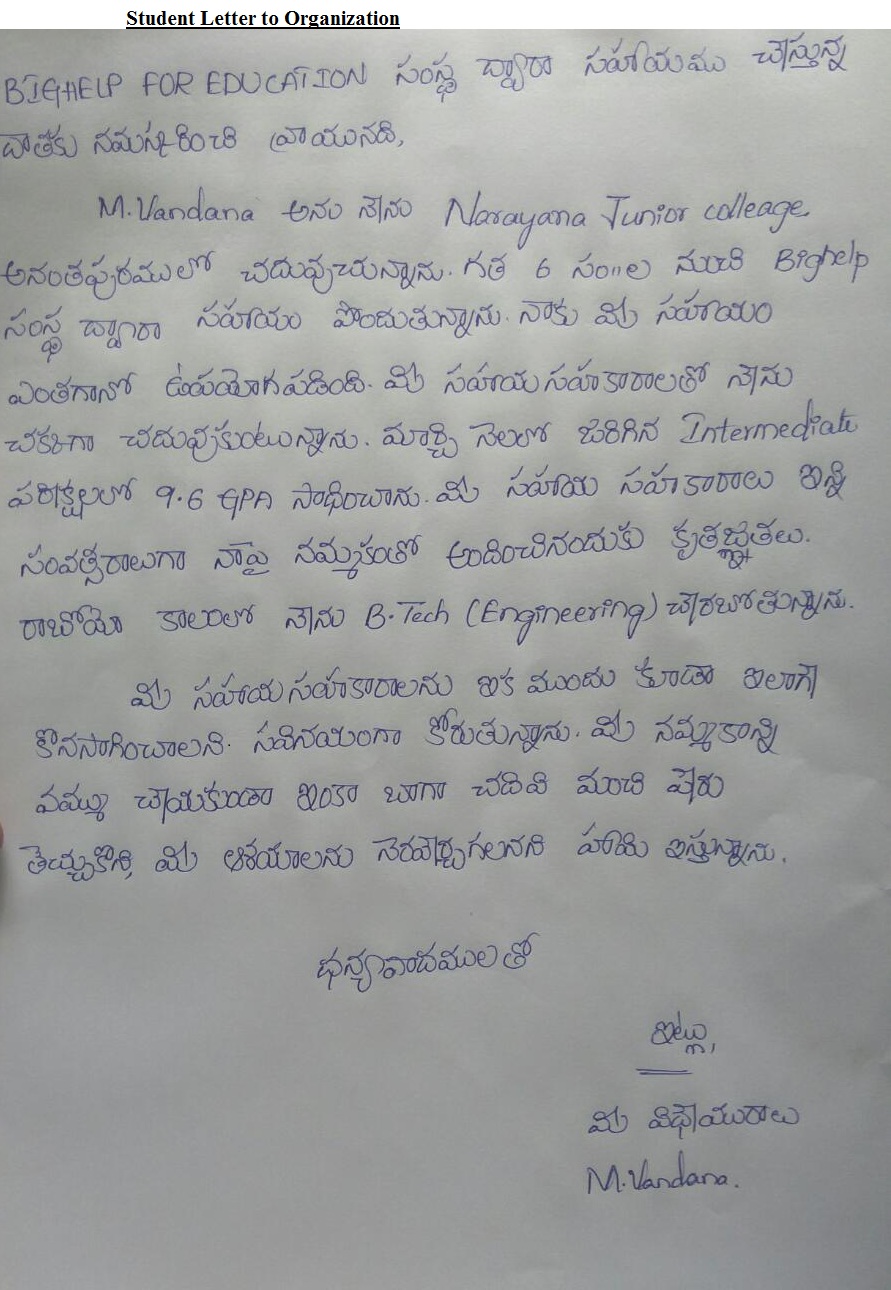 Student Letter to Organization
BIGHELP FOR EDUCATION సంస్థ ద్వారా సహాయము చేస్తున్న
వారికు నమస్కరించి వ్రాయునది,
M.Vandana అను నేను Narayana Junior colleage.
అనంతపురములో చదువుచున్నాను. గత 6 సం॥ల నుంచి Bighelp
సంస్థ ద్వారా సహాయం పొందుతున్నాను. నాకు మీ సహాయం
ఎంతగానో ఉపయోగపడింది. మీ సహాయ సహకారాలతో నేను
చక్కగా చదువుకుంటున్నాను. మార్చి నెలలో జరిగిన Intermediate
పరీక్షలలో 9.6 GPA సాధించాను. మీ సహాయ సహకారాలు ఇన్ని
సంవత్సరాలుగా నాపై నమ్మకంతో అందించినందుకు కృతజ్ఞతలు.
రాబోయే కాలంలో నేను B.Tech (Engineering) చేరబోతున్నాను.
మీ సహాయ సహకారాలను ఇక ముందు కూడా ఇలాగే
కొనసాగించాలని. సవినయంగా కోరుతున్నాను. మీ నమ్మకాన్ని
వమ్ము చేయకుండా ఇంకా బాగా చదివి మంచి పేరు
తెచ్చుకొని, మీ ఆశయాలను నెరవేర్చగలనని హామి ఇస్తున్నాను.
ధన్యవాదములతో
ఇట్లు,
మీ విధేయురాలు
M.Vandana.